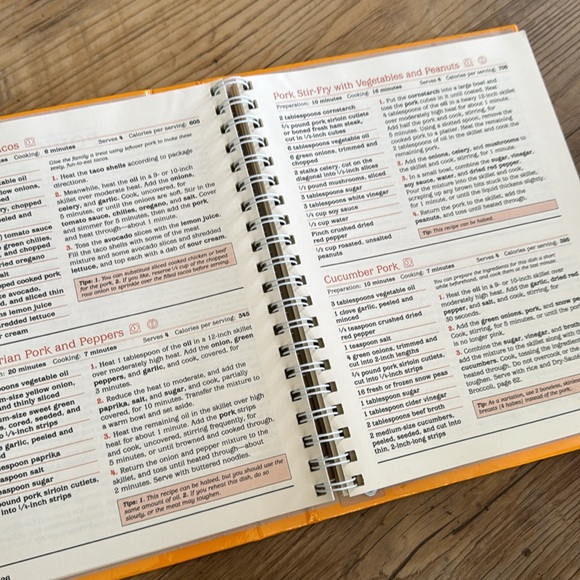 acos
Cooking: 6 minutes
Serves 4 Calories per serving: 605
Give the family a treat using leftover pork to make these
1. Heat the taco shells according to package
directions.
2. Meanwhile, heat the oil in a 9- or 10-inch
skillet over moderate heat. Add the onion,
celery, and garlic. Cook, uncovered, for
5 minutes, or until the onions are left. Stir in the
tomato sauce, chilies, oregano, and salt. Cover
and simmer for 5 minutes, then add the pork
and heat through—about 1 minute.
3. Toss the avocado slices with the lemon juice.
Fill the taco shells with some of the meat
mixture and some avocado slices and shredded
lettuce, and top each with a dab of sour cream.
Tips: 1. You can substitute sliced cooked chicken or beef
for the pork. 2. If you like, reserve 1/4 cup of the chopped
raw onion to sprinkle over the filled tacos before serving.
able oil
low onions,
ed
ery, chopped
and
tomato sauce
green chilies,
and chopped
dried oregano
salt
pped cooked pork
e avocado,
d, and sliced thin
ns lemon juice
hredded lettuce
r cream
rian Pork and Peppers
on: 20 minutes Cooking: 7 minutes
Serves 4 Calories per serving: 345
oons vegetable oil
um-size yellow onion,
and thinly sliced
um-size sweet green
s, cored, seeded, and
o 1/4-inch strips
e garlic, peeled and
espoon paprika
aspoon salt
aspoon sugar
pound pork sirloin cutlets,
into 1/4-inch strips
1. Heat 1 tablespoon of the oil in a 12-inch skillet
over moderately high heat. Add the onion, green
peppers, and garlic, and cook, covered, for
2 minutes.
2. Reduce the heat to moderate, and add the
paprika, salt, and sugar, and cook, partially
covered, for 10 minutes. Transfer the mixture to
a warm bowl and set aside.
3. Heat the remaining oil in the skillet over high
heat for about 1 minute. Add the pork strips
and cook, uncovered, stirring frequently, for
5 minutes, or until browned and cooked through.
4. Return the onion and pepper mixture to the
skillet, and toss until heated through—about
2 minutes. Serve with buttered noodles.
Tips: 1. This recipe can be halved, but you should use the
same amount of oil. 2. If you reheat this dish, do so
slowly, or the meat may toughen.
Pork Stir-Fry with Vegetables and Peanuts
Preparation: 10 minutes Cooking: 16 minutes
Serves 4 Calories per serving: 706
2 tablespoons cornstarch
pound pork sirloin cutlets
or boned fresh ham steak,
cut in 1/2-inch cubes
6 tablespoons vegetable oil
6 green onions, trimmed and
chopped
2 stalks celery, cut on the
diagonal into 1/4-inch slices
1/2 pound mushrooms, sliced
2 tablespoons sugar
3 tablespoons white vinegar
1/4 cup soy sauce
1/4 cup water
Pinch crushed dried
red pepper
cup roasted, unsalted
peanuts
1. Put the cornstarch into a large bowl and
toss the pork cubes in it until coated. Heat
4 tablespoons of the oil in a heavy 12-inch skillet
over moderately high heat for about 1 minute.
Add half the pork and cook, uncovered, for
5 minutes. Using a slotted spoon, remove the
cooked pork to a platter. Heat the remaining
2 tablespoons of oil in the skillet and cook the
remaining pork.
2. Add the onions, celery, and mushrooms to
the skillet and cook, stirring, for 1 minute.
3. In a small bowl, combine the sugar, vinegar,
soy sauce, water, and dried red pepper.
Pour the mixture into the skillet and cook,
scraping up any brown bits that cling to the skillet,
for 1 minute, or until the liquid thickens slightly.
4. Return the pork to the skillet, add the
peanuts, and toss until heated through.
Tip: This recipe can be halved.
Cucumber Pork
Preparation: 10 minutes Cooking: 7 minutes
Serves 4 Calories per serving: 395
3 tablespoons vegetable oil
1 clove garlic, peeled and
minced
1/4 teaspoon crushed dried
red pepper
1 teaspoon salt
6 green onions, trimmed and
cut into 2-inch lengths
pound pork sirloin cutlets,
cut into 1/4-inch strips
16 fresh or frozen snow peas
1 tablespoon sugar
1 tablespoon cider vinegar
2 tablespoons beef broth
2 medium-size cucumbers,
peeled, seeded, and cut into
thin, 2-inch-long strips
You can prepare the ingredients for this dish a short
time beforehand, and cook them at the last minute.
1. Heat the oil in a 9- or 10-inch skillet over
moderately high heat. Add the garlic, red
pepper, and salt, and cook, stirring, for
30 seconds.
2. Add the green onions, pork, and snow peas.
Cook, stirring, for 5 minutes, or until the pork
3. Combine the sugar, vinegar, and broth. Add
the mixture to the skillet along with the
cucumbers. Cook, tossing ingredients, until
heated through. Do not overcook or the pork will
toughen. Serve with rice and Dry-Sautéed
Broccoli, page 62.
Tip: As a variation, use 2 boneless, skinless chicken
breasts (4 halves) instead of the pork.